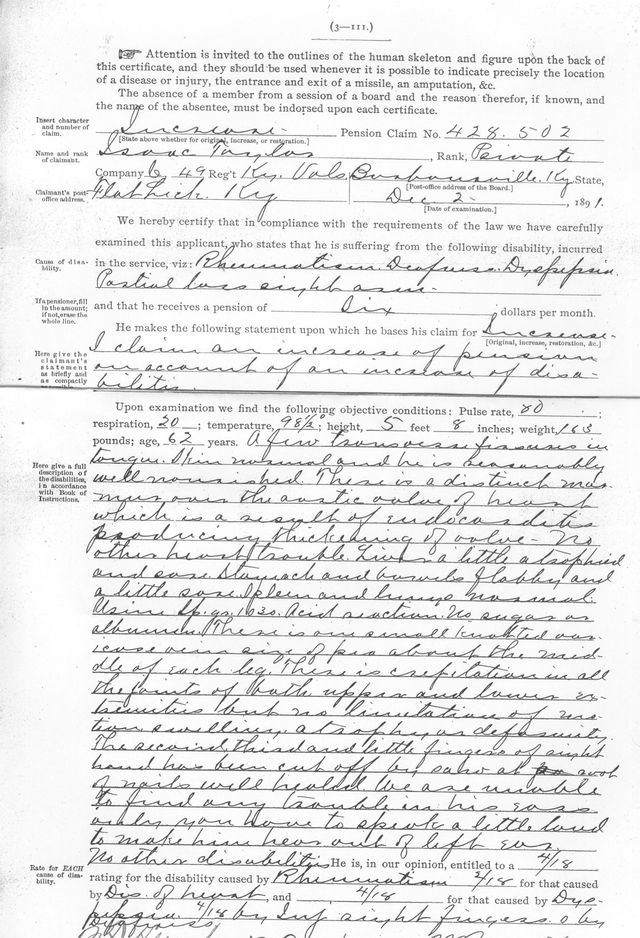 (3—111.)
☞ Attention is invited to the outlines of the human skeleton and figure upon the back of
this certificate, and they should be used whenever it is possible to indicate precisely the location
of a disease or injury, the entrance and exit of a missile, an amputation, &c.
The absence of a member from a session of a board and the reason therefor, if known, and
the name of the absentee, must be indorsed upon each certificate.
Insert character and number of claim.
Increase Pension Claim No. 428.502
[State above whether for original, increase, or restoration.]
Name and rank of claimant.
Isaac Taylor, Rank, Private
Company C, 49 Reg't Ky. Vols Barbourville. Ky State,
[Post-office address of the Board.]
Claimant's post-office address.
Flat Lick. Ky Dec 2, 1891.
[Date of examination.]
We hereby certify that in compliance with the requirements of the law we have carefully
examined this applicant, who states that he is suffering from the following disability, incurred
Cause of disability.
in the service, viz: Rheumatism Deafness. Dyspepsia.
Partial loss right arm.
If a pensioner, fill in the amount; if not, erase the whole line.
and that he receives a pension of Six dollars per month.
He makes the following statement upon which he bases his claim for Increase.
[Original, increase, restoration, &c.]
Here give the claimant's statement as briefly and as compactly
I claim an increase of pension
on account of an increase of disa-
bilities.
Upon examination we find the following objective conditions: Pulse rate, 80;
respiration, 20; temperature, 98½°; height, 5 feet 8 inches; weight, 163
pounds; age, 62 years. A few transverse fissures in
Here give a full description of the disabilities, in accordance with Book of Instructions.
tongue. Skin normal and he is reasonably
well nourished. There is a distinct mur-
mur over the aortic valve of heart
which is a result of endocarditis
producing thickening of valve - No
other heart trouble. Liver a little atrophied
and sore. Stomach and bowels flabby and
a little sore. Spleen and lungs normal.
Urine Sp. gr. 1030. Acid reaction. No sugar or
albumen. There is one small knotted var-
icose vein size of pea about the mid-
dle of each leg. There is crepitation in all
the joints of both upper and lower ex-
tremities but no limitation of mo-
tion, swelling, atrophy or deformity.
The second, third and little fingers of right
hand has been cut off by saw at root
of nails well healed. We are unable
to find any trouble in his ears
only you have to speak a little loud
to make him hear out of left ear.
No other disabilities He is, in our opinion, entitled to a 4/18
Rate for EACH cause of disability.
rating for the disability caused by Rheumatism 2/18 for that caused
by Dis. of heart, and 4/18 for that caused by Dys-
pepsia 4/18 by Inj. right fingers. 0 by
Deafness